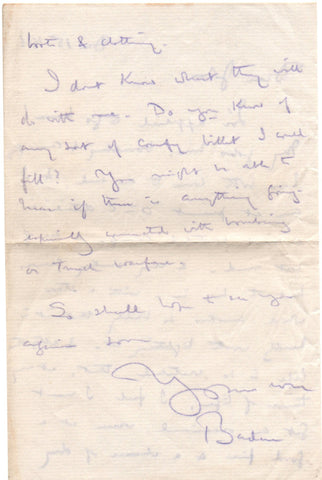 boots & clothing.
I dont know what they will
do with me. Do you know of
any sort of comfy billet I could
fill? You might be able to
hear if there is anything going
especially connected with bombing
or trench warfare.
So shall hope to see you
again soon
Yours ever